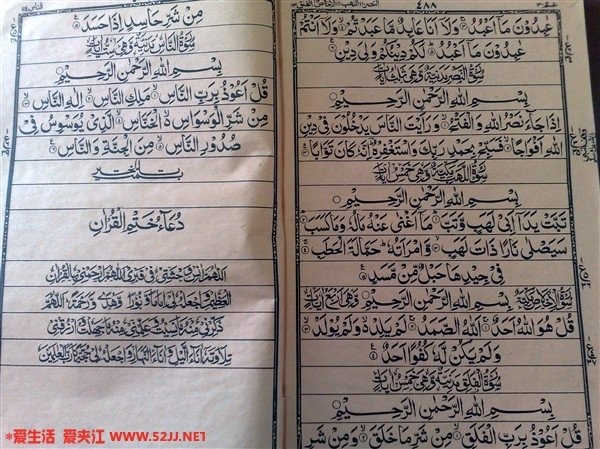 عم ٣٠
٤٨٨
عٰبِدُوْنَ مَآ اَعْبُدُ ۚ وَلَآ اَنَا عَابِدٌ مَّا عَبَدْتُّمْ ۙ وَلَآ اَنْتُمْ
عٰبِدُوْنَ مَآ اَعْبُدُ ؕ لَكُمْ دِيْنُكُمْ وَلِيَ دِيْنِ
سُوْرَةُ النَّصْرِ مَدَنِيَّةٌ وَّهِيَ ثَلٰثُ اٰيَاتٍ
بِسْمِ اللّٰهِ الرَّحْمٰنِ الرَّحِيْمِ
اِذَا جَآءَ نَصْرُ اللّٰهِ وَالْفَتْحُ ۙ وَرَاَيْتَ النَّاسَ يَدْخُلُوْنَ فِيْ دِيْنِ
اللّٰهِ اَفْوَاجًا ۙ فَسَبِّحْ بِحَمْدِ رَبِّكَ وَاسْتَغْفِرْهُ ؕ اِنَّهٗ كَانَ تَوَّابًا
بِسْمِ اللّٰهِ الرَّحْمٰنِ الرَّحِيْمِ
تَبَّتْ يَدَآ اَبِيْ لَهَبٍ وَّتَبَّ ؕ مَآ اَغْنٰى عَنْهُ مَالُهٗ وَمَا كَسَبَ
سَيَصْلٰى نَارًا ذَاتَ لَهَبٍ ۖ وَّامْرَاَتُهٗ ؕ حَمَّالَةَ الْحَطَبِ
فِيْ جِيْدِهَا حَبْلٌ مِّنْ مَّسَدٍ
بِسْمِ اللّٰهِ الرَّحْمٰنِ الرَّحِيْمِ
قُلْ هُوَ اللّٰهُ اَحَدٌ ۚ اَللّٰهُ الصَّمَدُ ۚ لَمْ يَلِدْ ۙ وَلَمْ يُوْلَدْ
وَلَمْ يَكُنْ لَّهٗ كُفُوًا اَحَدٌ
سُوْرَةُ الْفَلَقِ مَدَنِيَّةٌ وَّهِيَ خَمْسُ اٰيَاتٍ
بِسْمِ اللّٰهِ الرَّحْمٰنِ الرَّحِيْمِ
قُلْ اَعُوْذُ بِرَبِّ الْفَلَقِ ۙ مِنْ شَرِّ مَا خَلَقَ ۙ وَمِنْ شَرِّ
مِنْ شَرِّ حَاسِدٍ اِذَا حَسَدَ
سُوْرَةُ النَّاسِ مَدَنِيَّةٌ وَّهِيَ سِتُّ اٰيَاتٍ
بِسْمِ اللّٰهِ الرَّحْمٰنِ الرَّحِيْمِ
قُلْ اَعُوْذُ بِرَبِّ النَّاسِ ۙ مَلِكِ النَّاسِ ۙ اِلٰهِ النَّاسِ
مِنْ شَرِّ الْوَسْوَاسِ الْخَنَّاسِ ۙ الَّذِيْ يُوَسْوِسُ فِيْ
صُدُوْرِ النَّاسِ ۙ مِنَ الْجِنَّةِ وَالنَّاسِ
دُعَآءُ خَتْمِ الْقُرْاٰنِ
اَللّٰهُمَّ اٰنِسْ وَحْشَتِيْ فِيْ قَبْرِيْ اَللّٰهُمَّ ارْحَمْنِيْ بِالْقُرْاٰنِ
الْعَظِيْمِ وَاجْعَلْهُ لِيْٓ اِمَامًا وَّنُوْرًا وَّهُدًى وَّرَحْمَةً اَللّٰهُمَّ
ذَكِّرْنِيْ مِنْهُ مَا نَسِيْتُ وَعَلِّمْنِيْ مِنْهُ مَا جَهِلْتُ وَارْزُقْنِيْ
تِلَاوَتَهٗ اٰنَآءَ الَّيْلِ وَاٰنَآءَ النَّهَارِ وَاجْعَلْهُ لِيْ حُجَّةً يَّا رَبَّ الْعٰلَمِيْنَ
*爱生活 爱夹江 WWW.52JJ.NET